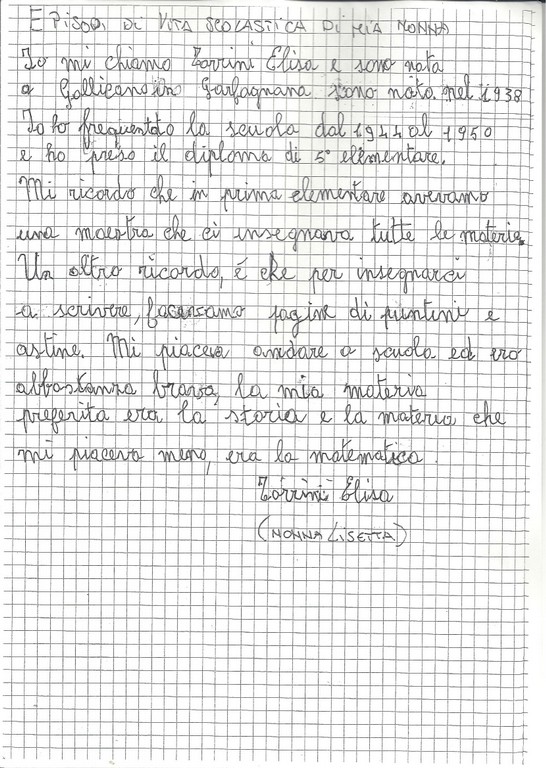 EPISODI DI VITA SCOLASTICA DI MIA NONNA
Io mi chiamo Zorrini Elisa e sono nata
a Gallicano in Garfagnana sono nata nel 1938
Io ho frequentato la scuola dal 1944 al 1950
e ho preso il diploma di 5° elementare.
Mi ricordo che in prima elementare avevamo
una maestra che ci insegnava tutte le materie.
Un altro ricordo, é che per insegnarci
a scrivere, facevamo pagine di puntini e
astine. Mi piaceva andare a scuola ed ero
abbastanza brava, la mia materia
preferita era la storia e la materia che
mi piaceva meno, era la matematica.
Zorrini Elisa
(NONNA LISETTA)